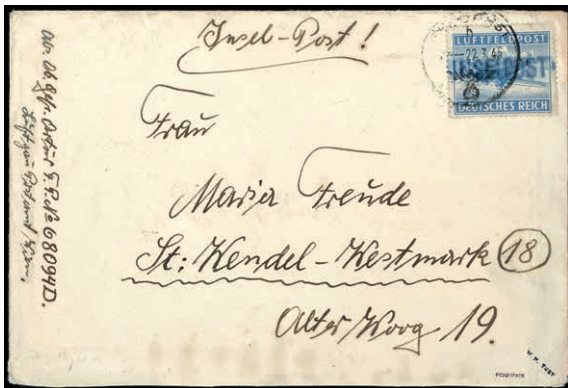 Insel-Post!
-22.3.45
LUFTFELDPOST
INSELPOST
DEUTSCHES REICH
Frau
Maria Freude
St: Wendel - Westmark 18
Alter Woog 19.
Abs. Ob. Gefr. Artur F.P.No 68094D.
Luftgaupostamt Wien.